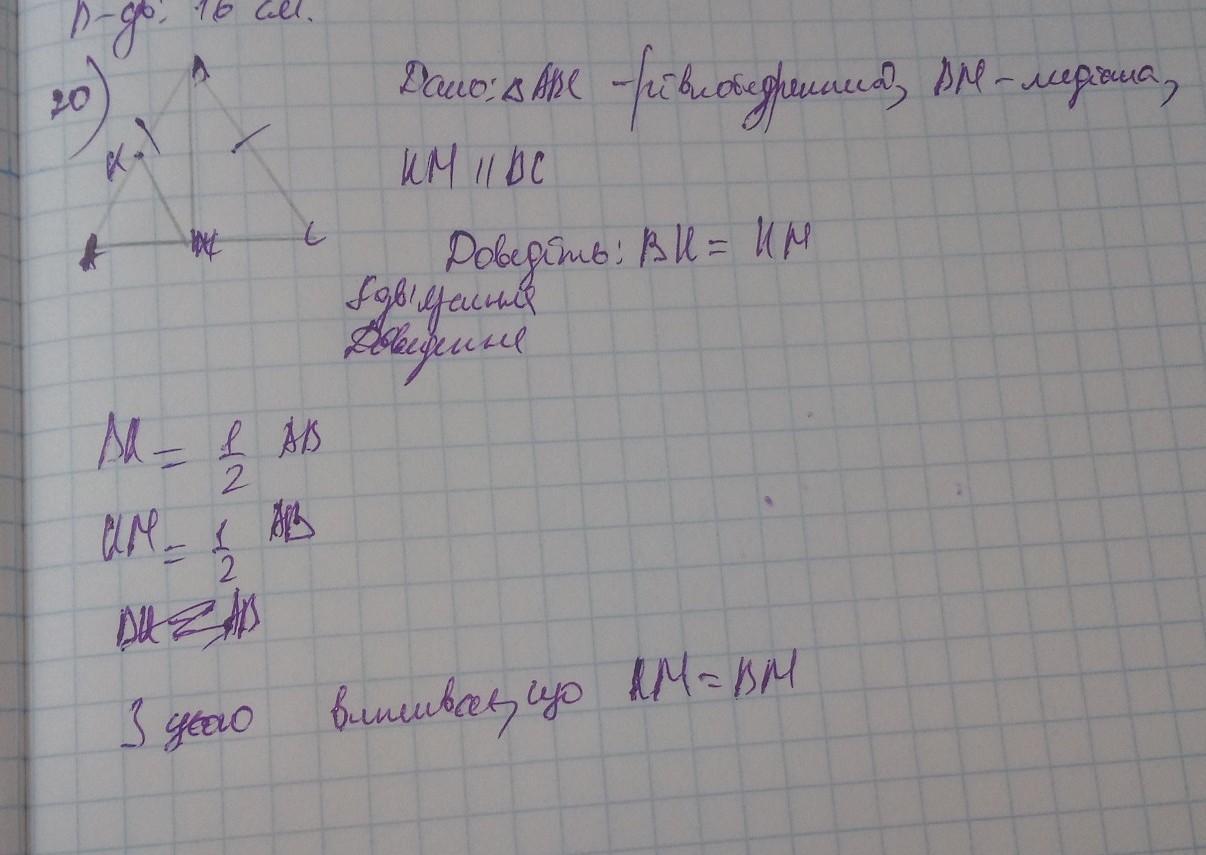 В-дь: 16 см.
20)
B
K
A
M
C
Дано: △ABC - рівнобедренний, BM - медіана,
KM || BC
Доведіть: BK = KM
Доведення
BK = 1/2 AB
KM = 1/2 AB
BK = AB
З цього випливає, що KM = BM